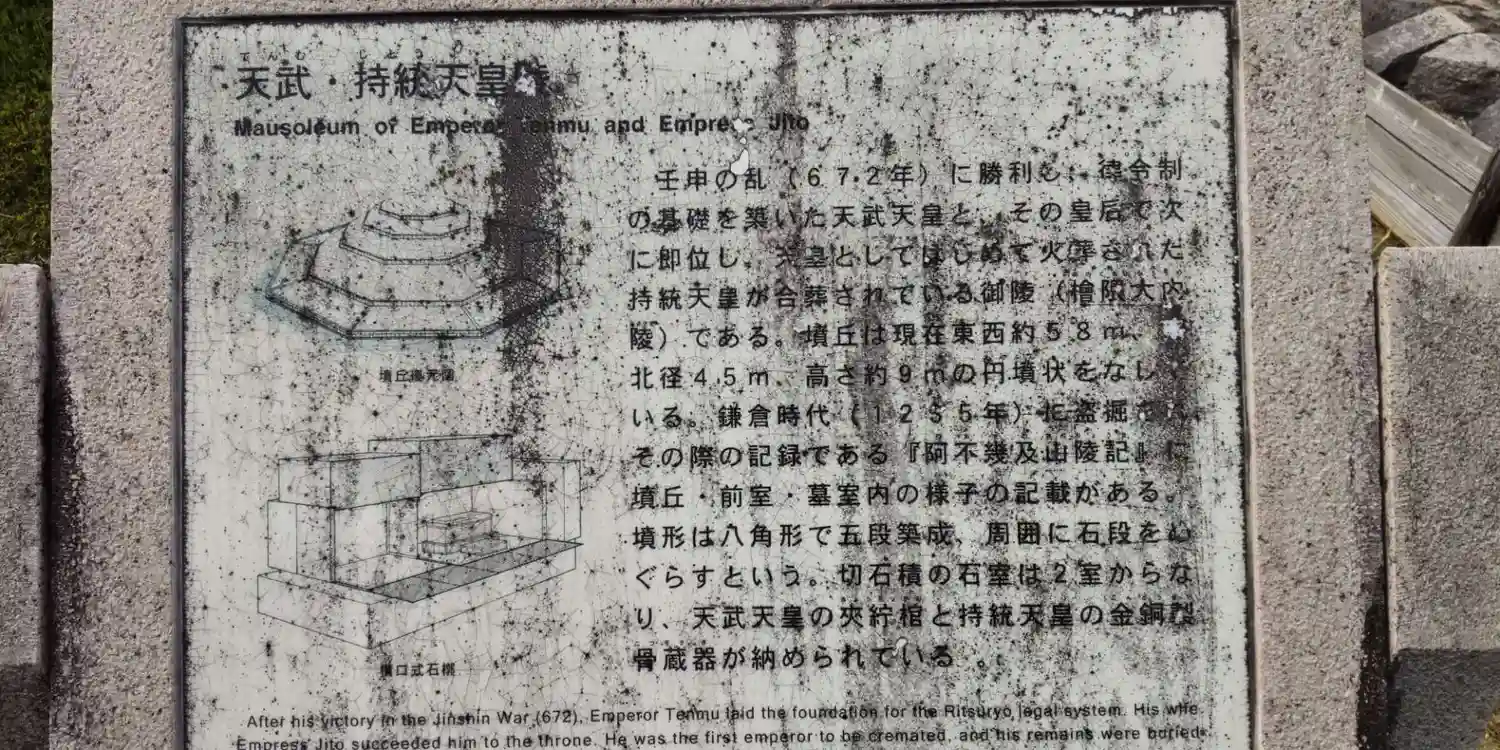 てんむ じとう
天武・持統天皇
Mausoleum of Emperor Tenmu and Empress Jito
壬申の乱（672年）に勝利し、律令制
の基礎を築いた天武天皇と、その皇后で次
に即位し、天皇としてはじめて火葬された
持統天皇が合葬されている御陵（檜隈大内
陵）である。墳丘は現在東西約58m、
北径45m、高さ約9mの円墳状をなし
いる。鎌倉時代（1235年）に盗掘
その際の記録である『阿不幾及山陵記』に
墳丘・前室・墓室内の様子の記載がある。
墳形は八角形で五段築成、周囲に石段をめ
ぐらすという。切石積の石室は2室からな
り、天武天皇の夾紵棺と持統天皇の金銅製
骨蔵器が納められている 。
墳丘復元図
横口式石槨
After his victory in the Jinshin War (672), Emperor Tenmu laid the foundation for the Ritsuryo legal system. His wife
Empress Jito succeeded him to the throne. He was the first emperor to be cremated, and his remains were buried